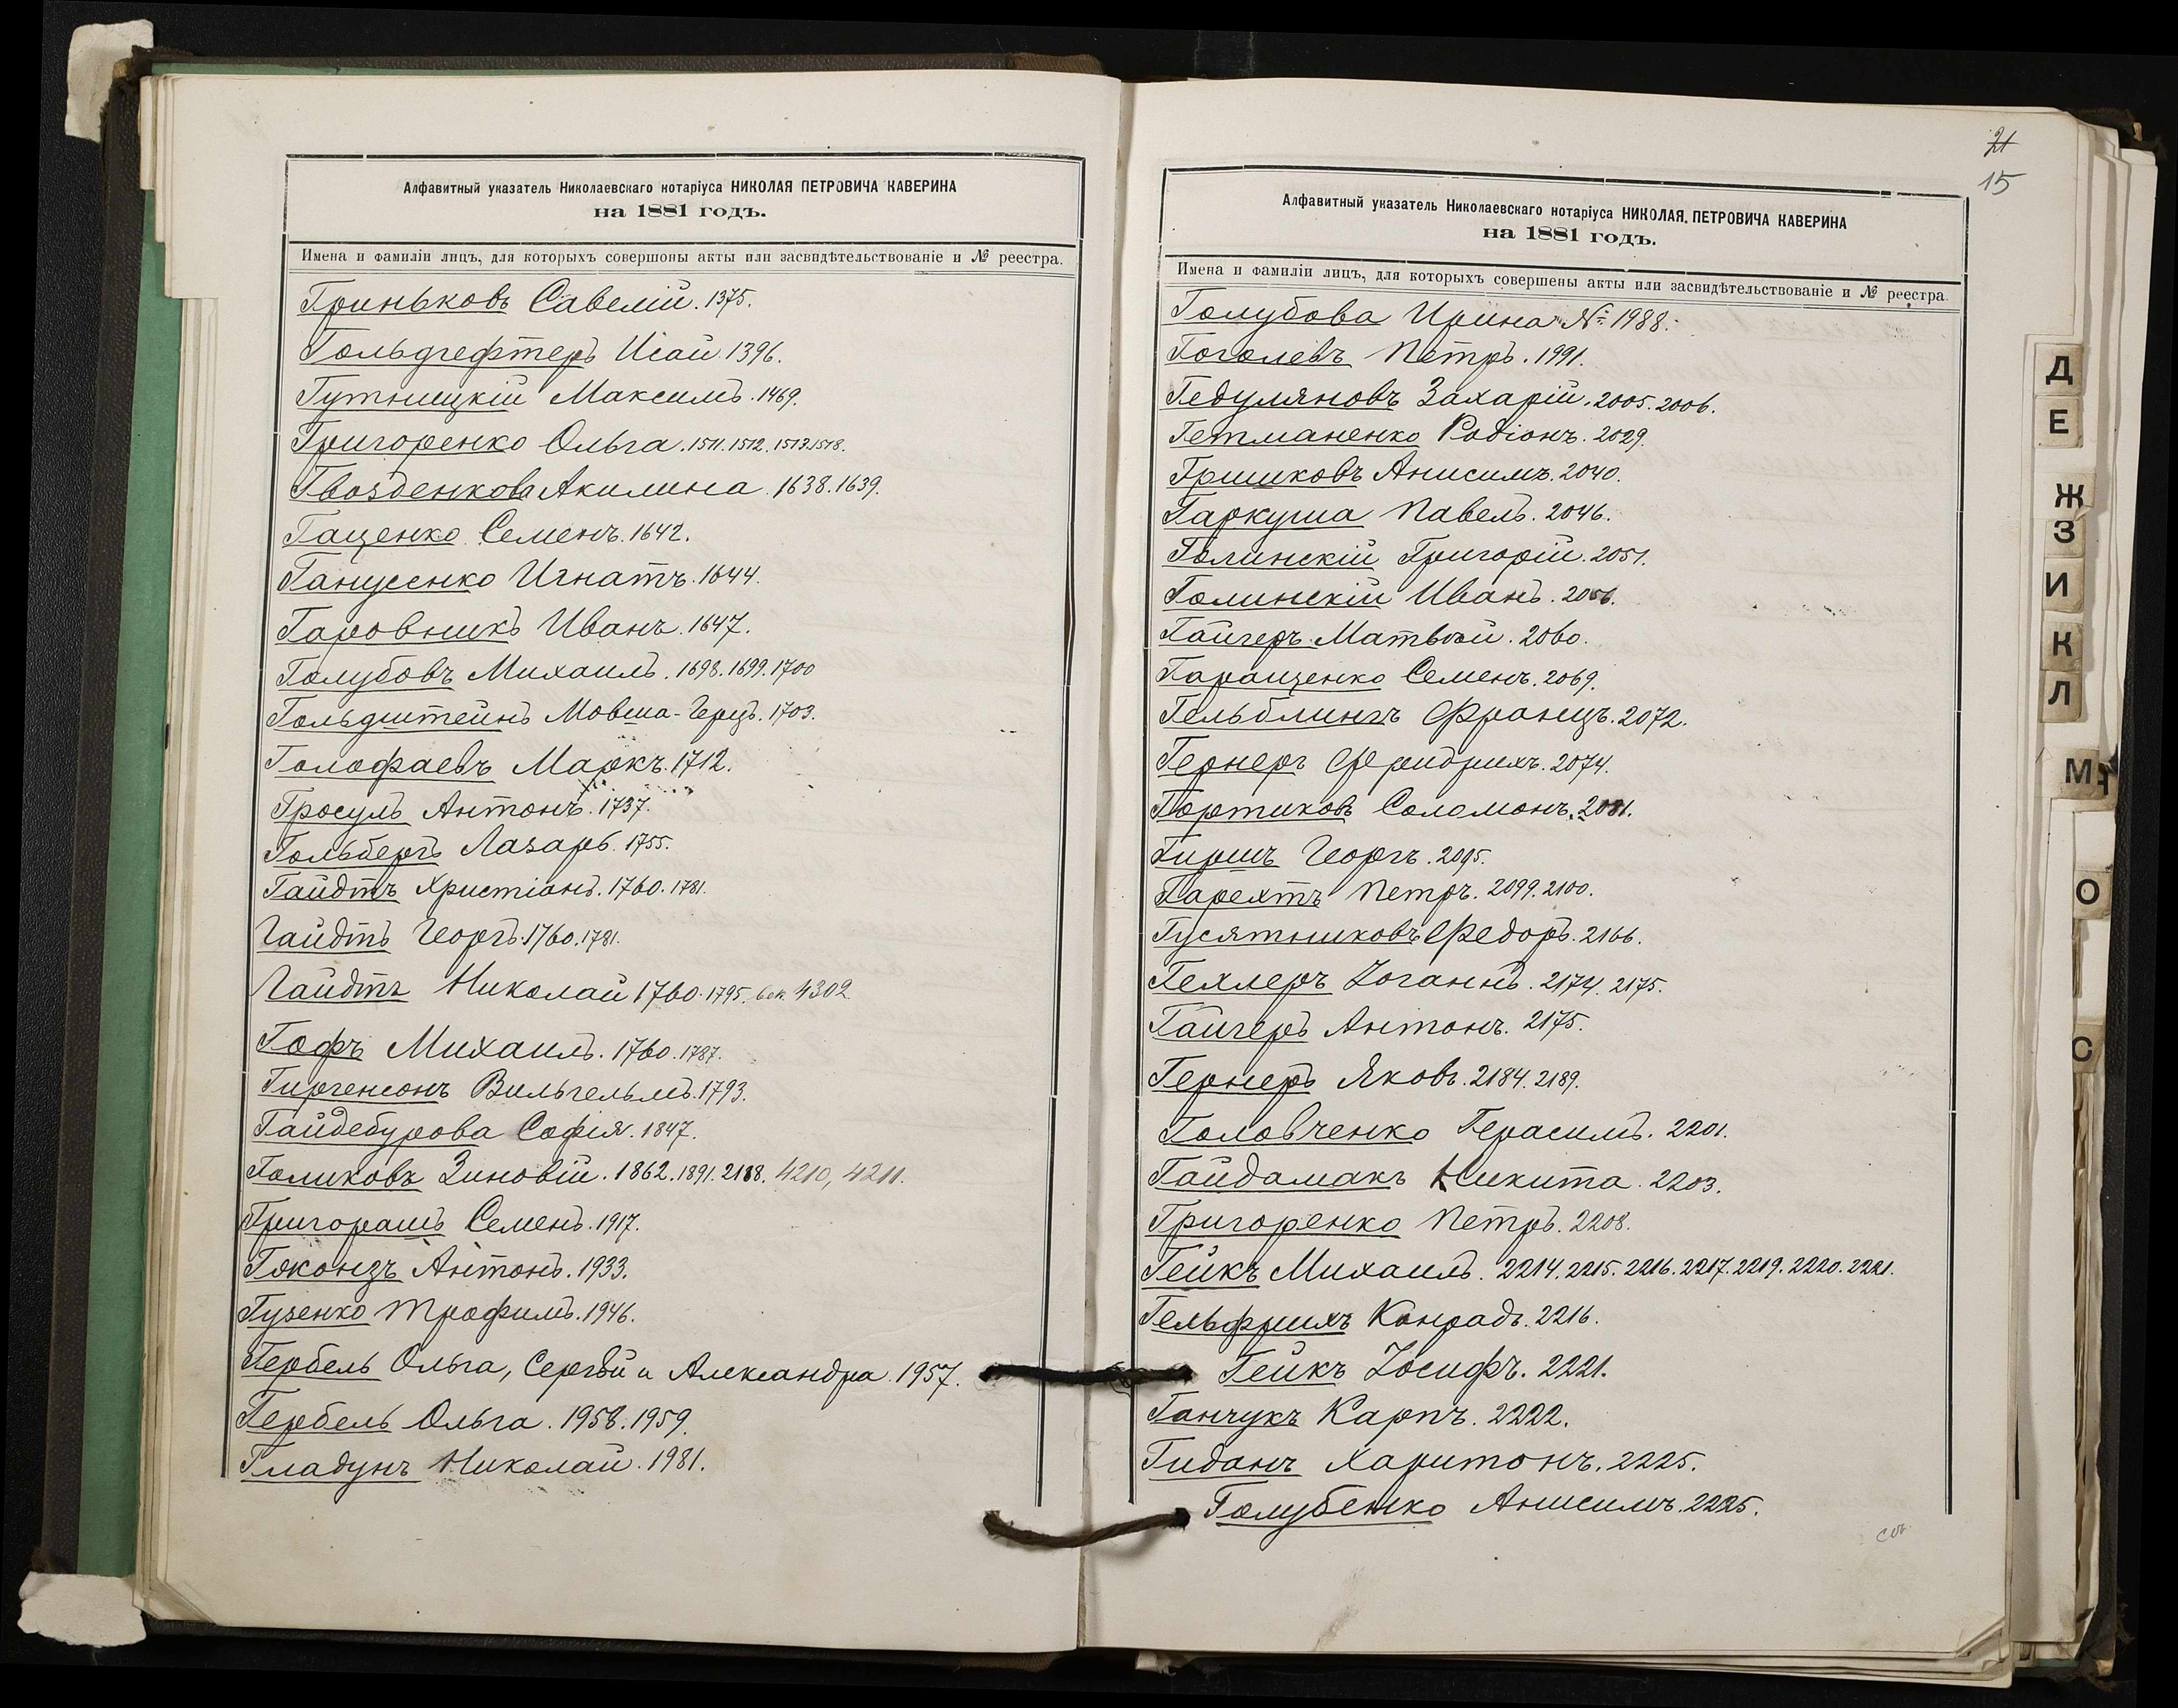 Алфавитный указатель Николаевскаго нотаріуса НИКОЛАЯ ПЕТРОВИЧА КАВЕРИНА
на 1881 годъ.
Имена и фамиліи лицъ, для которыхъ совершоны акты или засвидѣтельствованіе и № реестра.
Гриньковъ Савелій. 1375.
Гольдгефтеръ Исай. 1396.
Гутницкій Максимъ. 1469.
Григоренко Ольга. 1511. 1512. 1513. 1518.
Гвозденкова Акилина. 1638. 1639.
Гаценко Семенъ. 1642.
Ганусенко Игнатъ. 1644.
Гаровникъ Иванъ. 1647.
Голубовъ Михаилъ. 1698. 1699. 1700
Гольдштейнъ Мовша-Герцъ. 1703.
Голофаевъ Маркъ. 1712.
Гросулъ Антонъ. 1737.
Гольбергъ Лазарь. 1755.
Гайдтъ Христіанъ. 1760. 1781.
Гайдтъ Георгъ. 1760. 1781.
Гайдтъ Николай 1760. 1795. 4302
Гофъ Михаилъ. 1760. 1787.
Гиргенсонъ Вильгельмъ. 1793.
Гайдебурова Софія. 1847.
Голиковъ Зиновій. 1862. 1891. 2188. 4210, 4211.
Григорашъ Семенъ. 1917.
Антонъ. 1933.
Гузенко Трофимъ. 1946.
Гербель Ольга, Сергѣй и Александра. 1957.
Гербель Ольга. 1958. 1959.
Гладунъ Николай. 1981.
21
15
Алфавитный указатель Николаевскаго нотаріуса НИКОЛАЯ ПЕТРОВИЧА КАВЕРИНА
на 1881 годъ.
Имена и фамиліи лицъ, для которыхъ совершены акты или засвидѣтельствованіе и № реестра.
Голубова Ирина № 1988.
Гоголевъ Петръ. 1991.
Гедуляновъ Захарій. 2005. 2006.
Гетманенко Родіонъ. 2029.
Гришковъ Анисимъ. 2040.
Гаркуша Павелъ. 2046.
Голинскій Григорій. 2051.
Голинскій Иванъ. 2056.
Гайгеръ Матвѣй. 2060.
Гаращенко Семенъ. 2069.
Гельблингъ Францъ. 2072.
Гернеръ Фридрихъ. 2074.
Гортиковъ Соломонъ. 2081.
Гиршъ Георгъ. 2095.
Гарехтъ Петръ. 2099. 2100.
Гусятниковъ Федоръ. 2166.
Гехлеръ Іоганнъ. 2174. 2175.
Гайгеръ Антонъ. 2175.
Гернеръ Яковъ. 2184. 2189.
Головченко Герасимъ. 2201.
Гайдамакъ Никита. 2203.
Григоренко Петръ. 2208.
Гейкъ Михаилъ. 2214. 2215. 2216. 2217. 2219. 2220. 2221.
Гельфрихъ Конрадъ. 2216.
Гейкъ Іосифъ. 2221.
Ганчукъ Карпъ. 2222.
Гиданъ Харитонъ. 2225.
Голубенко Анисимъ. 2225.
Д
Е
Ж
З
И
К
Л
М
О
С